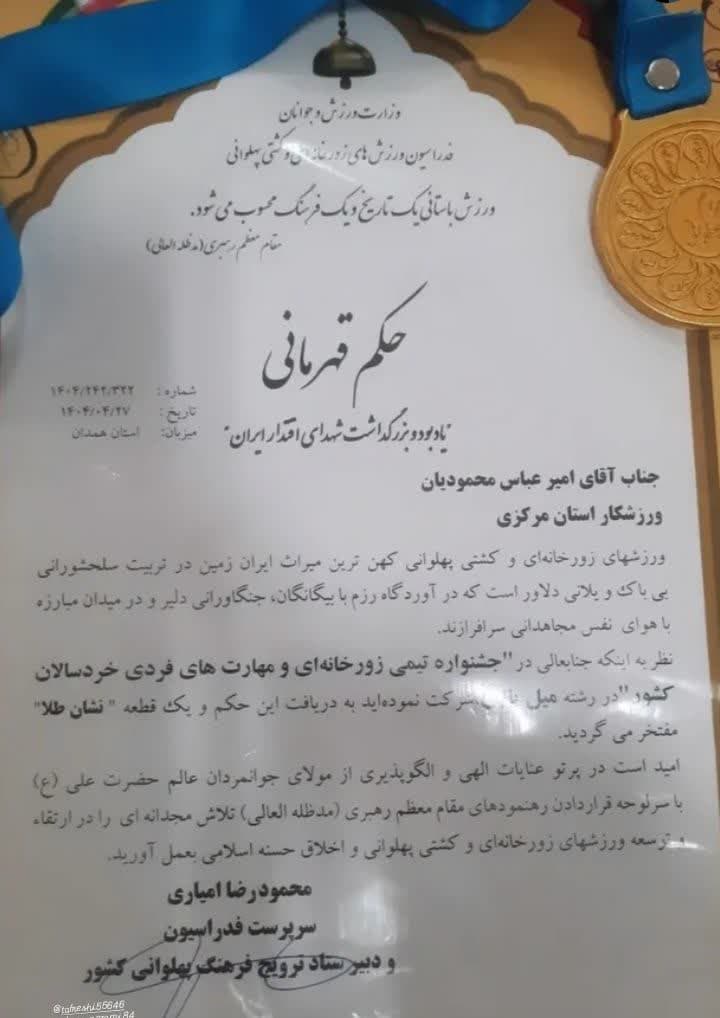 وزارت ورزش و جوانان
فدراسیون ورزش های زورخانه‌ای و کشتی پهلوانی
ورزش باستانی یک تاریخ و یک فرهنگ محسوب می شود.
مقام معظم رهبری (مدظله العالی)
حکم قهرمانی
شماره : ۱۴۰۴/۲۴۲/۳۲۲
تاریخ : ۱۴۰۴/۰۴/۲۷
میزبان: استان همدان
"یادبود و بزرگداشت شهدای اقتدار ایران"
جناب آقای امیر عباس محمودیان
ورزشکار استان مرکزی
ورزشهای زورخانه‌ای و کشتی پهلوانی کهن ترین میراث ایران زمین در تربیت سلحشورانی
بی باک و یلانی دلاور است که در آوردگاه رزم با بیگانگان، جنگاورانی دلیر و در میدان مبارزه
با هوای نفس مجاهدانی سرافرازند.
نظر به اینکه جنابعالی در "جشنواره تیمی زورخانه‌ای و مهارت های فردی خردسالان
کشور" در رشته میل شرکت نموده‌اید به دریافت این حکم و یک قطعه " نشان طلا"
مفتخر می گردید.
امید است در پرتو عنایات الهی و الگوپذیری از مولای جوانمردان عالم حضرت علی (ع)
با سرلوحه قراردادن رهنمودهای مقام معظم رهبری (مدظله العالی) تلاش مجدانه ای را در ارتقاء
و توسعه ورزشهای زورخانه‌ای و کشتی پهلوانی و اخلاق حسنه اسلامی بعمل آورید.
محمودرضا امیاری
سرپرست فدراسیون
و دبیر ستاد ترویج فرهنگ پهلوانی کشور
@tafreshi55646